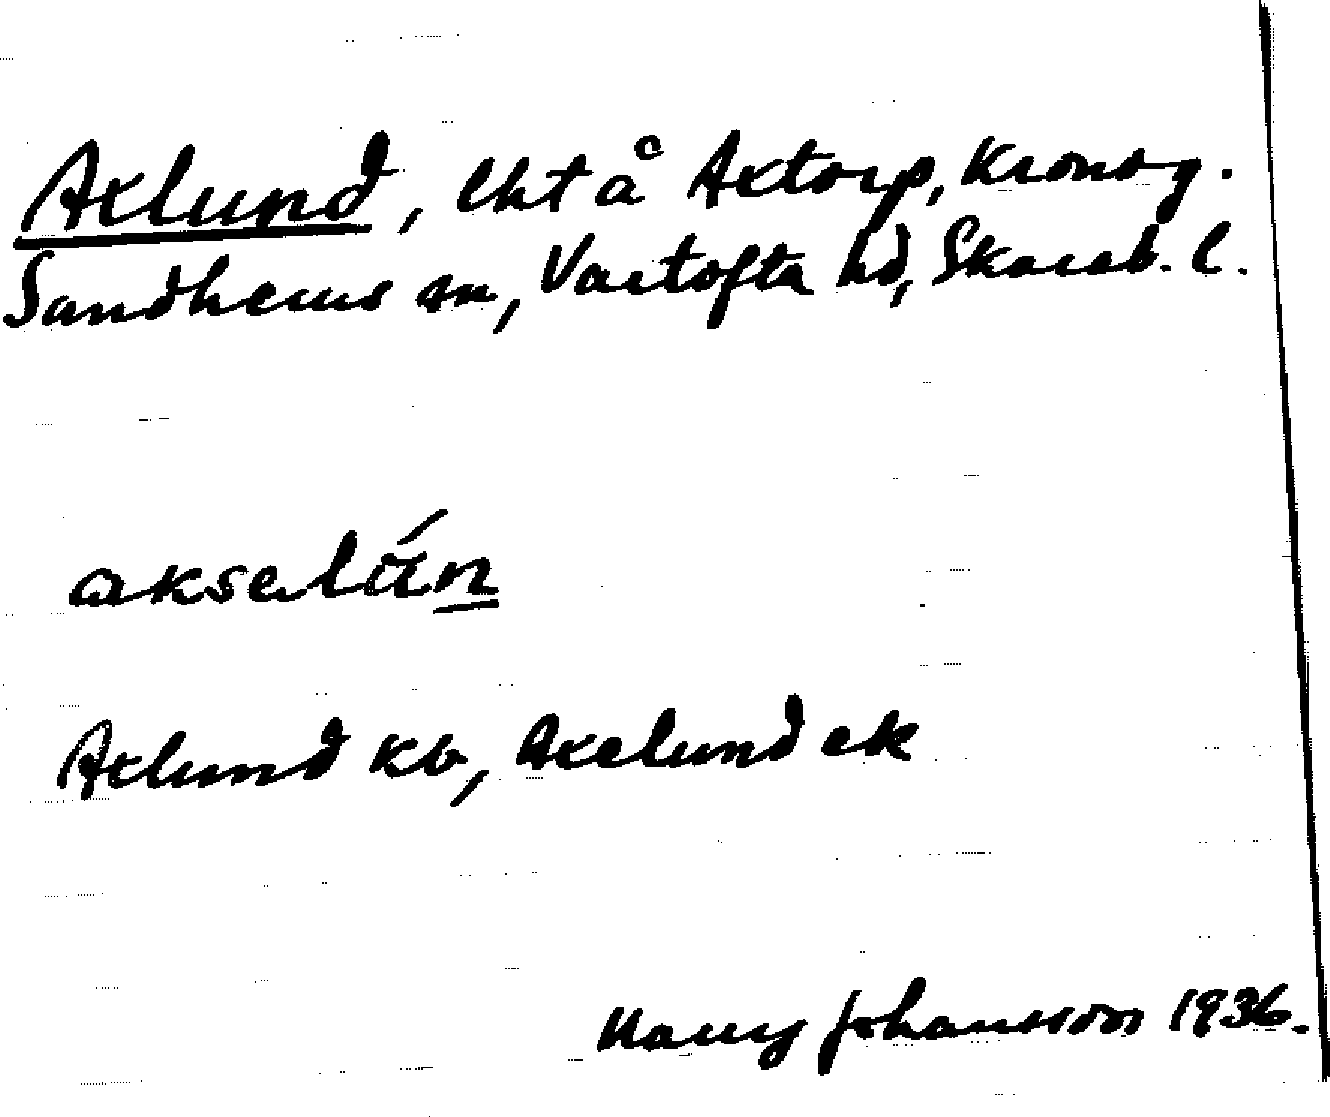 Axlund, lht å Axtorp, Kronog.
Sandhems sn, Vartofta hd, Skarab. l.
akselún
Axlund kb, Axelund ek
Harry Johansson 1936.